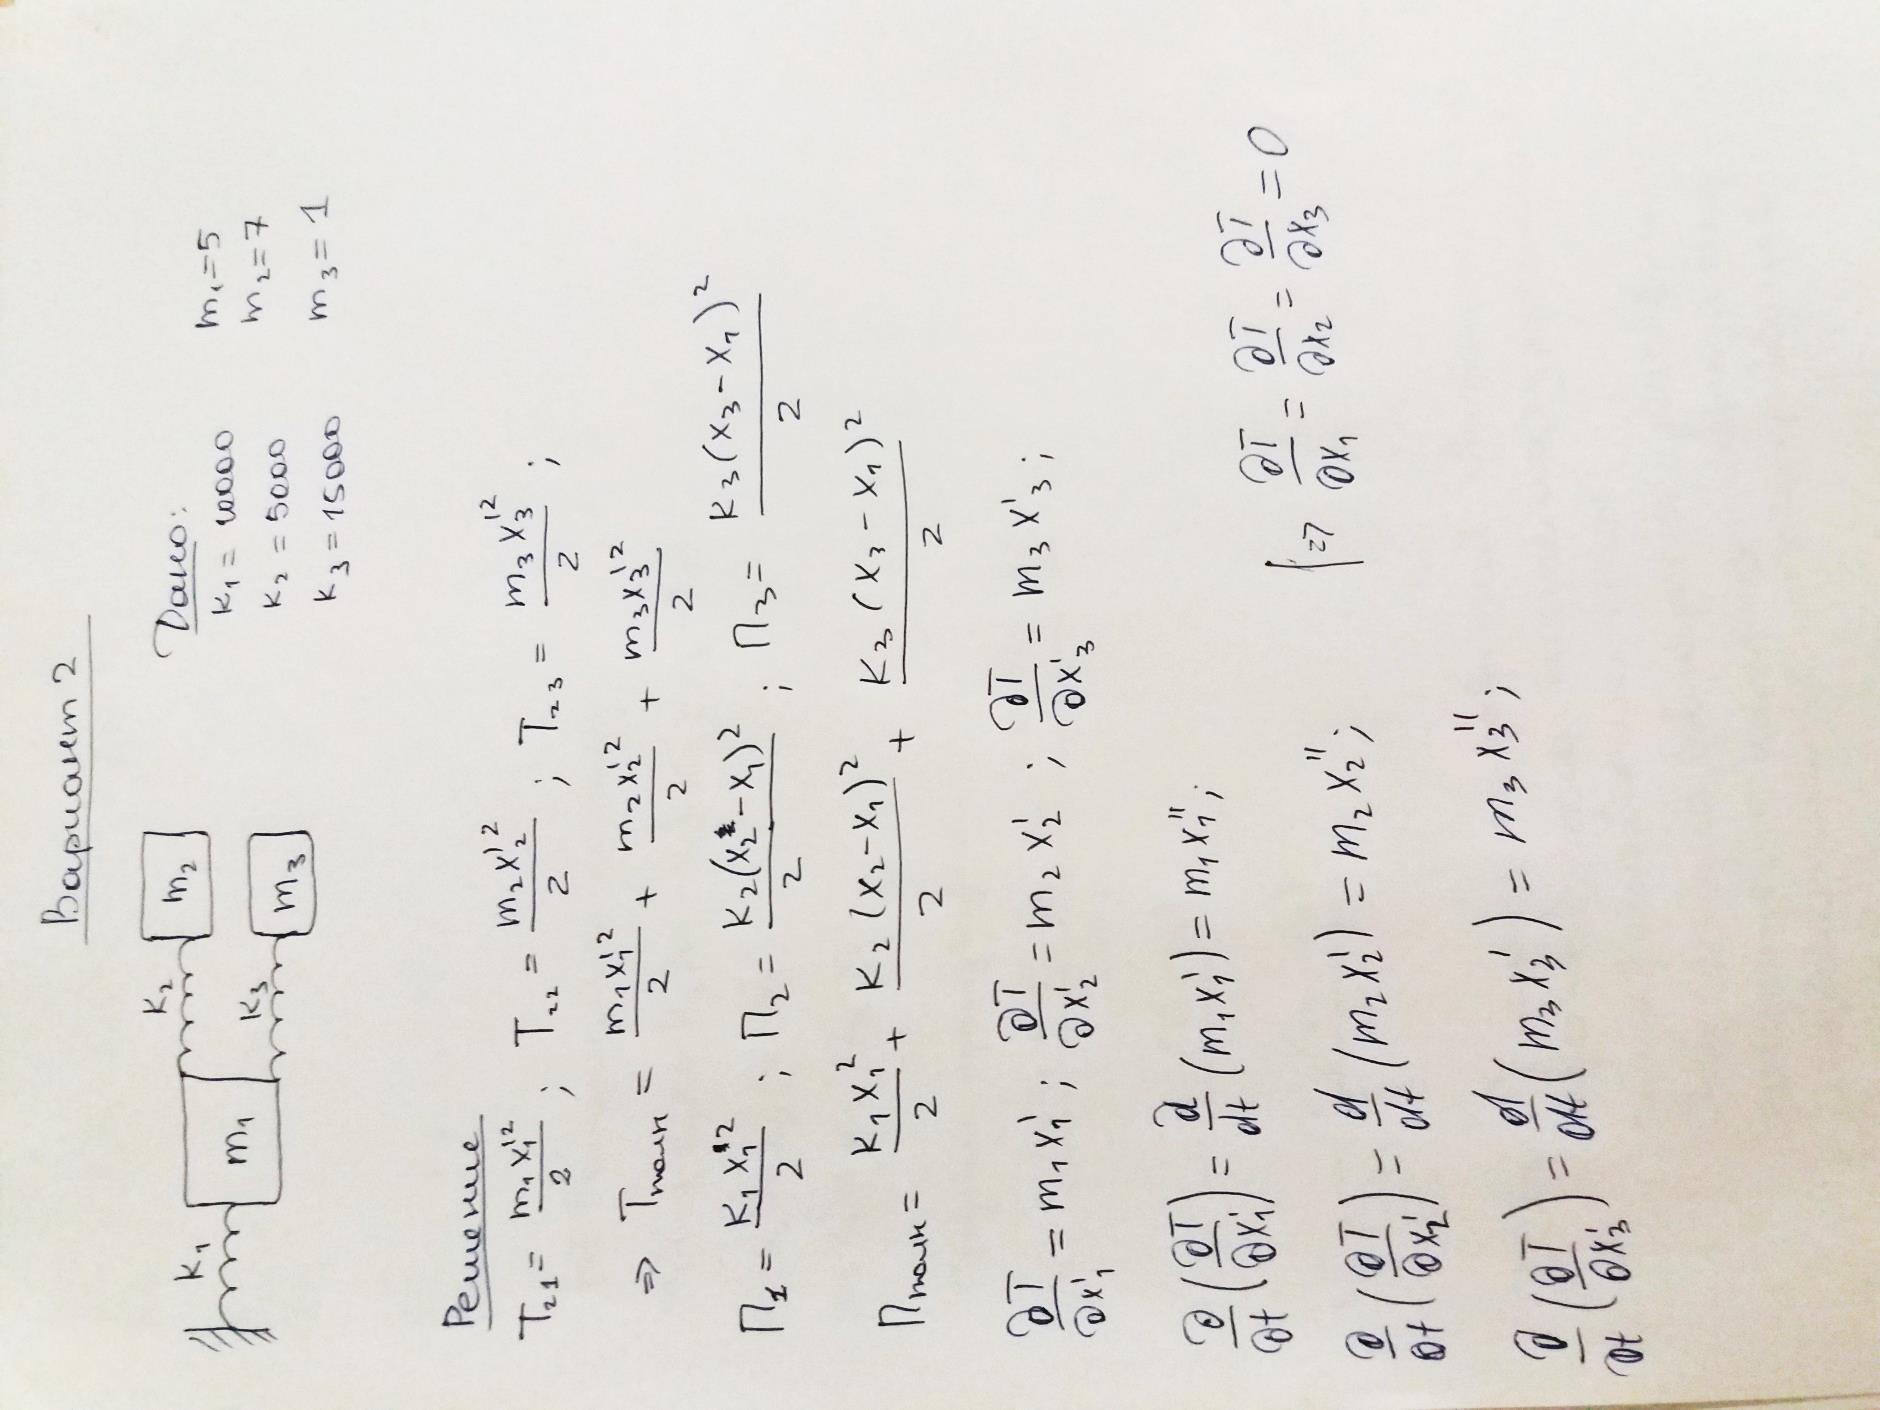 Вариант 2
K₁ m₁ K₂ m₂ K₃ m₃
Дано:
K₁ = 10000 m₁ = 5
K₂ = 5000 m₂ = 7
K₃ = 15000 m₃ = 1
Решение
T₂₁ = m₁x₁'²/2 ; T₂₂ = m₂x₂'²/2 ; T₂₃ = m₃x₃'²/2 ;
⇒ Tполн = m₁x₁'²/2 + m₂x₂'²/2 + m₃x₃'²/2
П₁ = K₁x₁²/2 ; П₂ = K₂(x₂ - x₁)²/2 ; П₃ = K₃(x₃ - x₁)²/2
Пполн = K₁x₁²/2 + K₂(x₂ - x₁)²/2 + K₃(x₃ - x₁)²/2
∂T/∂x₁' = m₁x₁' ; ∂T/∂x₂' = m₂x₂' ; ∂T/∂x₃' = m₃x₃' ;
∂/∂t (∂T/∂x₁') = d/dt (m₁x₁') = m₁x₁'' ;
∂/∂t (∂T/∂x₂') = d/dt (m₂x₂') = m₂x₂'' ; ⇒ ∂T/∂x₁ = ∂T/∂x₂ = ∂T/∂x₃ = 0
∂/∂t (∂T/∂x₃') = d/dt (m₃x₃') = m₃x₃'' ;